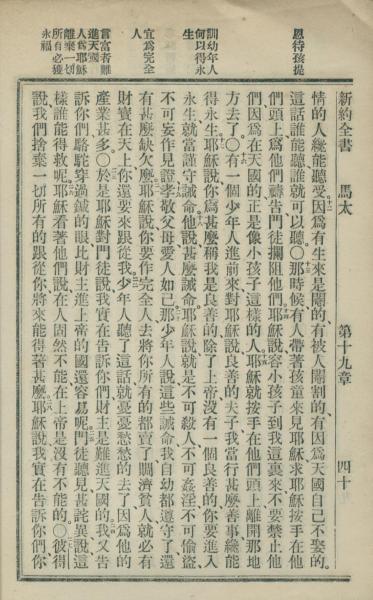 新約全書 馬太 第十九章 四十
恩待孩提
訓幼年人
何以得永
生
宜爲完全
人
言富者難
進天國
人爲耶穌
離棄一切
所有必獲
永福
情的人纔能聽受因爲有生來是閹的有被人閹割的有因爲天國自己不娶的
這話誰能聽誰就可以聽〇那時候有人帶著孩童來見耶穌求耶穌按手在他
們頭上爲他們禱告門徒攔阻他們耶穌說容小孩子到我這裏來不要禁止他
們因爲在天國的正是像小孩子這樣的人耶穌就按手在他們頭上離開那地
方去了〇有一個少年人進前來對耶穌說良善的夫子我當行甚麼善事纔能
得永生耶穌說你爲甚麼稱我是良善的除了上帝沒有一個良善的你要進入
永生就當謹守誡命他說甚麼誡命耶穌說就是不可殺人不可姦淫不可偷盜
不可妄作見證孝敬父母愛人如己那少年人說這些誡命我自幼都遵守了還
有甚麼缺欠麼耶穌說你要作完全人去將你所有的都賣了賙濟貧人就必有
財寶在天上你還要來跟從我少年人聽了這話就憂憂愁愁的去了因爲他的
產業甚多〇於是耶穌對門徒說我實在告訴你們財主是難進天國的我又告
訴你們駱駝穿過鍼的眼比財主進上帝的國還容易呢門徒聽見甚詫異說這
樣誰能得救呢耶穌看著他們說在人固然不能在上帝是沒有不能的〇彼得
說我們捨棄一切所有的跟從你將來能得著甚麼耶穌說我實在告訴你們你